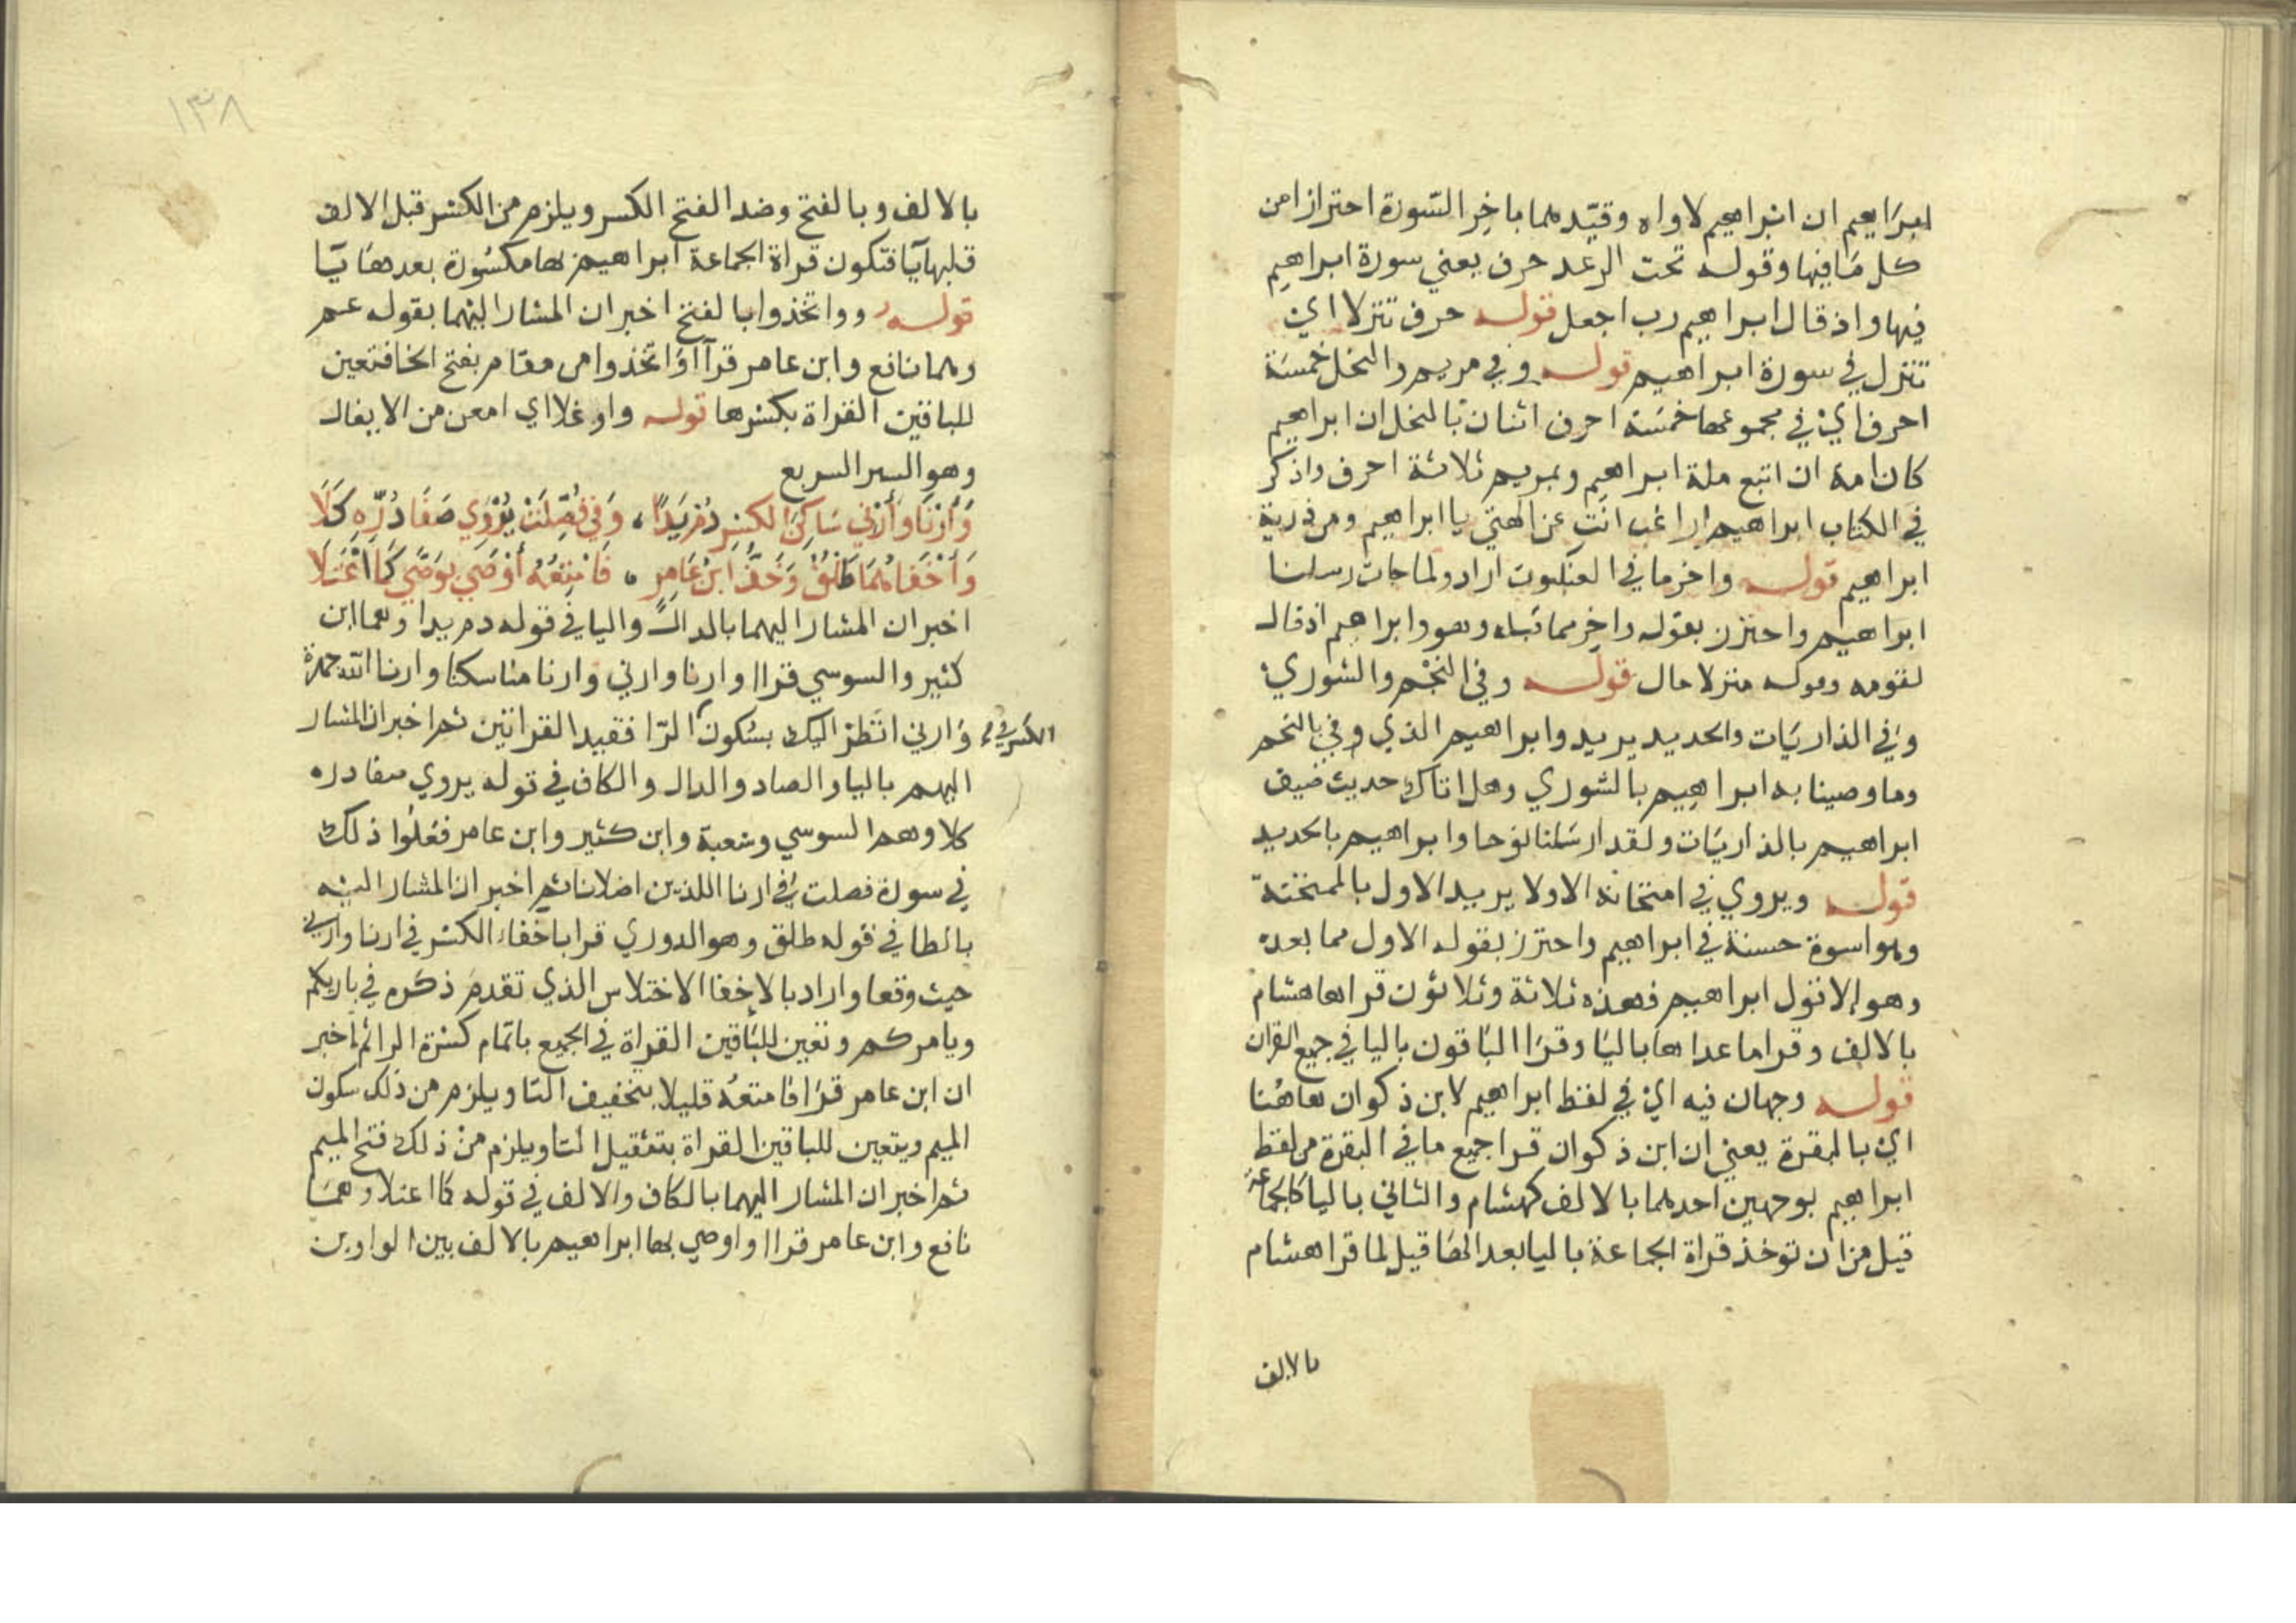 ابراهيم ان ابراهيم لاواه وقيدهما باخر السورة احترازا من
كل ما فيها وقوله تحت الرعد حرف يعني سورة ابراهيم
فيها واذ قال ابراهيم رب اجعل قوله حرف تنزلا اي
تنزل في سورة ابراهيم قوله وفي مريم والنحل خمسة
احرف اي في مجموعهما خمسة احرف اثنان بالنحل ان ابراهيم
كان امة ان اتبع ملة ابراهيم وبمريم ثلاثة احرف واذكر
في الكتاب ابراهيم اراغب انت عن الهتي يا ابراهيم ومن ذرية
ابراهيم قوله واخر ما في العنكبوت اراد ولما جات رسلنا
ابراهيم واحترز بقوله واخر مما قبله وهو وابراهيم اذ قال
لقومه وقوله منزلا حال قوله وفي النجم والشوري
وفي الذاريات والحديد يريد وابراهيم الذي وفي بالنجم
وما وصينا به ابراهيم بالشوري وهل اتاك حديث ضيف
ابراهيم بالذاريات ولقد ارسلنا نوحا وابراهيم بالحديد
قوله ويروي في امتحانه الاولا يريد الاول بالممتحنة
وهو اسوة حسنة في ابراهيم واحترز بقوله الاول مما بعده
وهو الا قول ابراهيم فهذه ثلاثة وثلاثون قراها هشام
بالالف وقرا ما عداها باليا وقرا الباقون باليا في جميع القران
قوله وجهان فيه اي في لفظ ابراهيم لابن ذكوان هاهنا
اي بالبقرة يعني ان ابن ذكوان قرا جميع ما في البقرة من لفظ
ابراهيم بوجهين احدهما بالالف كهشام والثاني باليا كالجماعة
قيل من ان توخذ قراة الجماعة باليا بعد الها قيل لما قرا هشام
بالالف
١٣٨
بالالف وبالفتح وضد الفتح الكسر ويلزم من الكسر قبل الالف
قلبها يا فتكون قراة الجماعة ابراهيم بها مكسورة بعدها يا
قوله وواتخذوا بالفتح اخبر ان المشار اليهما بقوله عم
وهما نافع وابن عامر قرآ واتخذوا من مقام بفتح الخا فتعين
للباقين القراة بكسرها قوله واوغلا اي امعن من الايغال
وهو السير السريع
وَأَرْنَا وَأَرْنِي سَاكِنَ الكَسْرِ دُمْ يَدًا، وَفِي فُصِّلَتْ يُرْوَي صَفَا دُرِّهِ كَلَا
وَأَخْفَاهُمَا طَلْقٌ وَخَفُّ ابْنِ عَامِرٍ، فَامْتِعُهُ أَوْصَي بِوَصَّي كَمَا اعْتَلَا
اخبر ان المشار اليهما بالدال واليا في قوله دم يدا وهما ابن
كثير والسوسي قراا وارنا وارني وارنا مناسكنا وارنا الله جهرة
وارني انظر اليك بسكون الرا فقيد القراتين ثم اخبر ان المشار
الكسر في
اليهم باليا والصاد والدال والكاف في قوله يروي صفا دره
كلا وهم السوسي وشعبة وابن كثير وابن عامر فعلوا ذلك
في سورة فصلت في ارنا اللذين اضلانا ثم اخبر ان المشار اليه
بالطا في قوله طلق وهو الدوري قرا باخفاء الكسر في ارنا وارني
حيث وقعا واراد بالاخفا الاختلاس الذي تقدم ذكره في باريكم
ويامركم وتعين للباقين القراة في الجميع باتمام كسرة الرا ثم اخبر
ان ابن عامر قرا فامتعه قليلا بتخفيف التا ويلزم من ذلك سكون
الميم ويتعين للباقين القراة بتثقيل التا ويلزم من ذلك فتح الميم
ثم اخبر ان المشار اليهما بالكاف والالف في قوله كما اعتلا وهما
نافع وابن عامر قراا واوصي بها ابراهيم بالالف بين الواوين